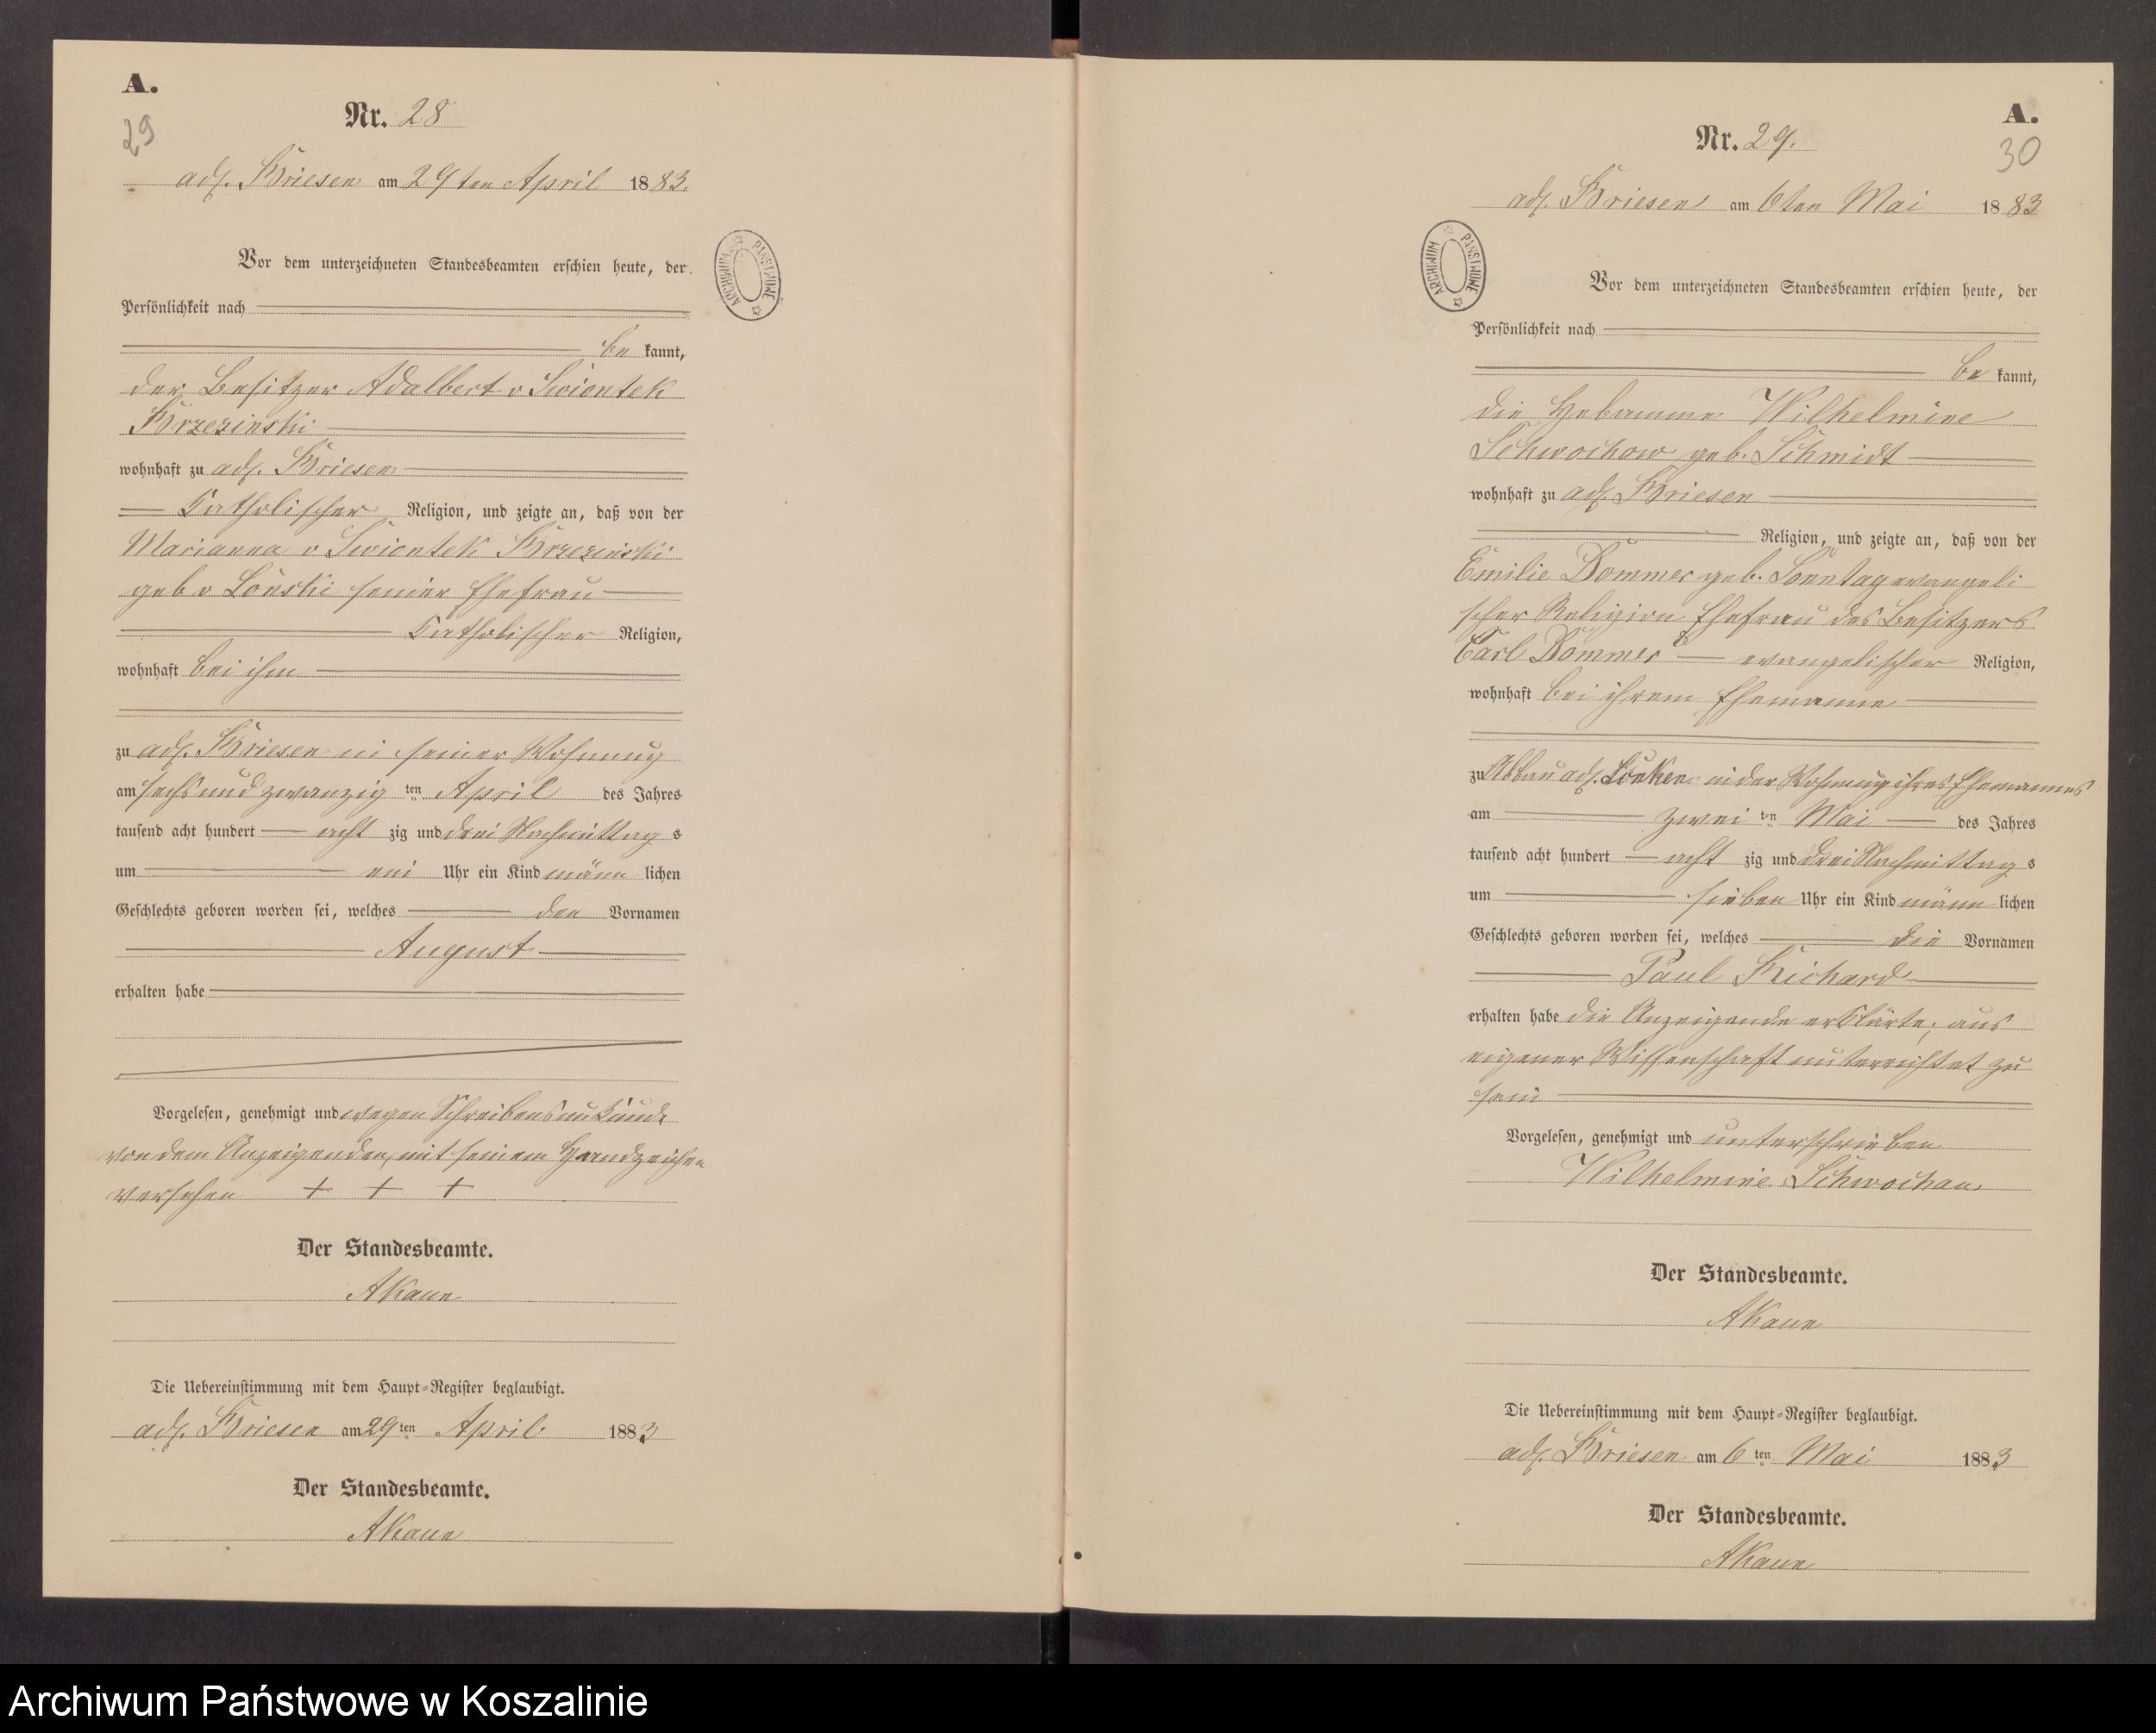 A.
29
Nr. 28
adl. Briesen am 29ten April 1883.
Vor dem unterzeichneten Standesbeamten erschien heute, der
Persönlichkeit nach
be kannt,
der Besitzer Adalbert v Swiontek
Brzezinski
wohnhaft zu adl. Briesen
Catholischer Religion, und zeigte an, daß von der
Marianna v Swiontek Brzezinski
geb v Lonski seiner Ehefrau
Catholischer Religion,
wohnhaft bei ihm
zu adl. Briesen in seiner Wohnung
am sechs und zwanzig ten April des Jahres
tausend acht hundert acht zig und drei Nachmittag s
um ein Uhr ein Kind männ lichen
Geschlechts geboren worden sei, welches den Vornamen
August
erhalten habe
Vorgelesen, genehmigt und wegen Schreibensunkunde
von dem Anzeigenden, mit seinem Handzeichen
versehen + + +
Der Standesbeamte.
AKaun
Die Uebereinstimmung mit dem Haupt-Register beglaubigt.
adl. Briesen am 29 ten April 1883
Der Standesbeamte.
AKaun
ARCHIWUM PAŃSTWOWE
A.
30
Nr. 29.
adl. Briesen am 6ten Mai 1883
Vor dem unterzeichneten Standesbeamten erschien heute, der
Persönlichkeit nach
be kannt,
die Hebamme Wilhelmine
Schwochow geb. Schmidt
wohnhaft zu adl. Briesen
Religion, und zeigte an, daß von der
Emilie Dommer geb. Sonntag evangeli
scher Religion Ehefrau des Besitzers
Carl Dommer evangelischer Religion,
wohnhaft bei ihrem Ehemanne
zu Abbau adl. Lonken in der Wohnung ihres Ehemannes
am zwei ten Mai des Jahres
tausend acht hundert acht zig und drei Nachmittag s
um sieben Uhr ein Kind männ lichen
Geschlechts geboren worden sei, welches die Vornamen
Paul Richard
erhalten habe die Anzeigende erklärte, aus
eigener Wissenschaft unterrichtet zu
sein
Vorgelesen, genehmigt und unterschrieben
Wilhelmine Schwochau
Der Standesbeamte.
AKaun
Die Uebereinstimmung mit dem Haupt-Register beglaubigt.
adl. Briesen am 6 ten Mai 1883
Der Standesbeamte.
AKaun
ARCHIWUM PAŃSTWOWE
Archiwum Państwowe w Koszalinie